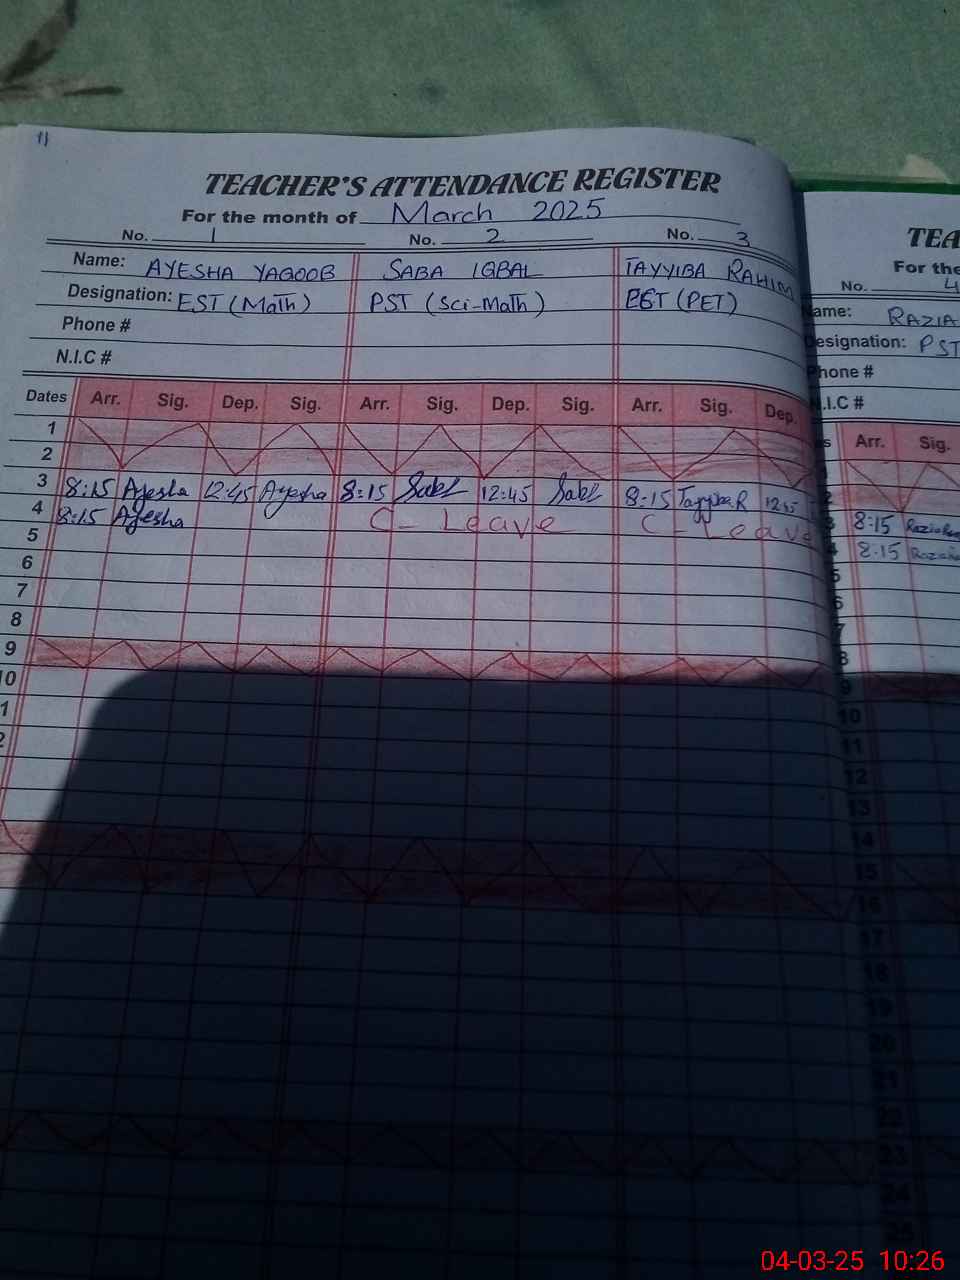 11
TEACHER'S ATTENDANCE REGISTER
For the month of March 2025
No. 1 No. 2 No. 3
Name: AYESHA YAQOOB SABA IQBAL TAYYIBA RAHIM
Designation: EST (Math) PST (Sci-Math) EST (PET)
Phone #
N.I.C #
Dates Arr. Sig. Dep. Sig. Arr. Sig. Dep. Sig. Arr. Sig. Dep.
1
2
3 8:15 Ayesha 12:45 Ayesha 8:15 Saba 12:45 Saba 8:15 Tayyiba R 12:45
4 8:15 Ayesha C - Leave C - Leave
5
6
7
8
9
10
1
2
TEA
For the
No. 4
Name: RAZIA
Designation: PST
Phone #
N.I.C #
es Arr. Sig.
2
3 8:15 Razia
4 8:15 Razia
5
6
7
8
9
10
11
12
13
14
15
16
17
18
19
20
21
22
23
24
25
04-03-25 10:26